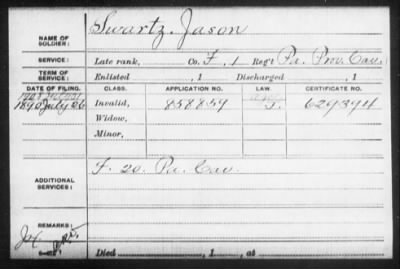 NAME OF SOLDIER: Swartz, Jason
SERVICE: Late rank, Co. F, 1 Reg't Pa. Prov. Cav.
TERM OF SERVICE: Enlisted , 1 Discharged , 1
DATE OF FILING. CLASS. APPLICATION NO. LAW. CERTIFICATE NO.
1890 July 26 Invalid, 858859 629394
Widow,
Minor,
ADDITIONAL SERVICES: F. 20. Pa. Cav.
REMARKS:
Died , 1 , at